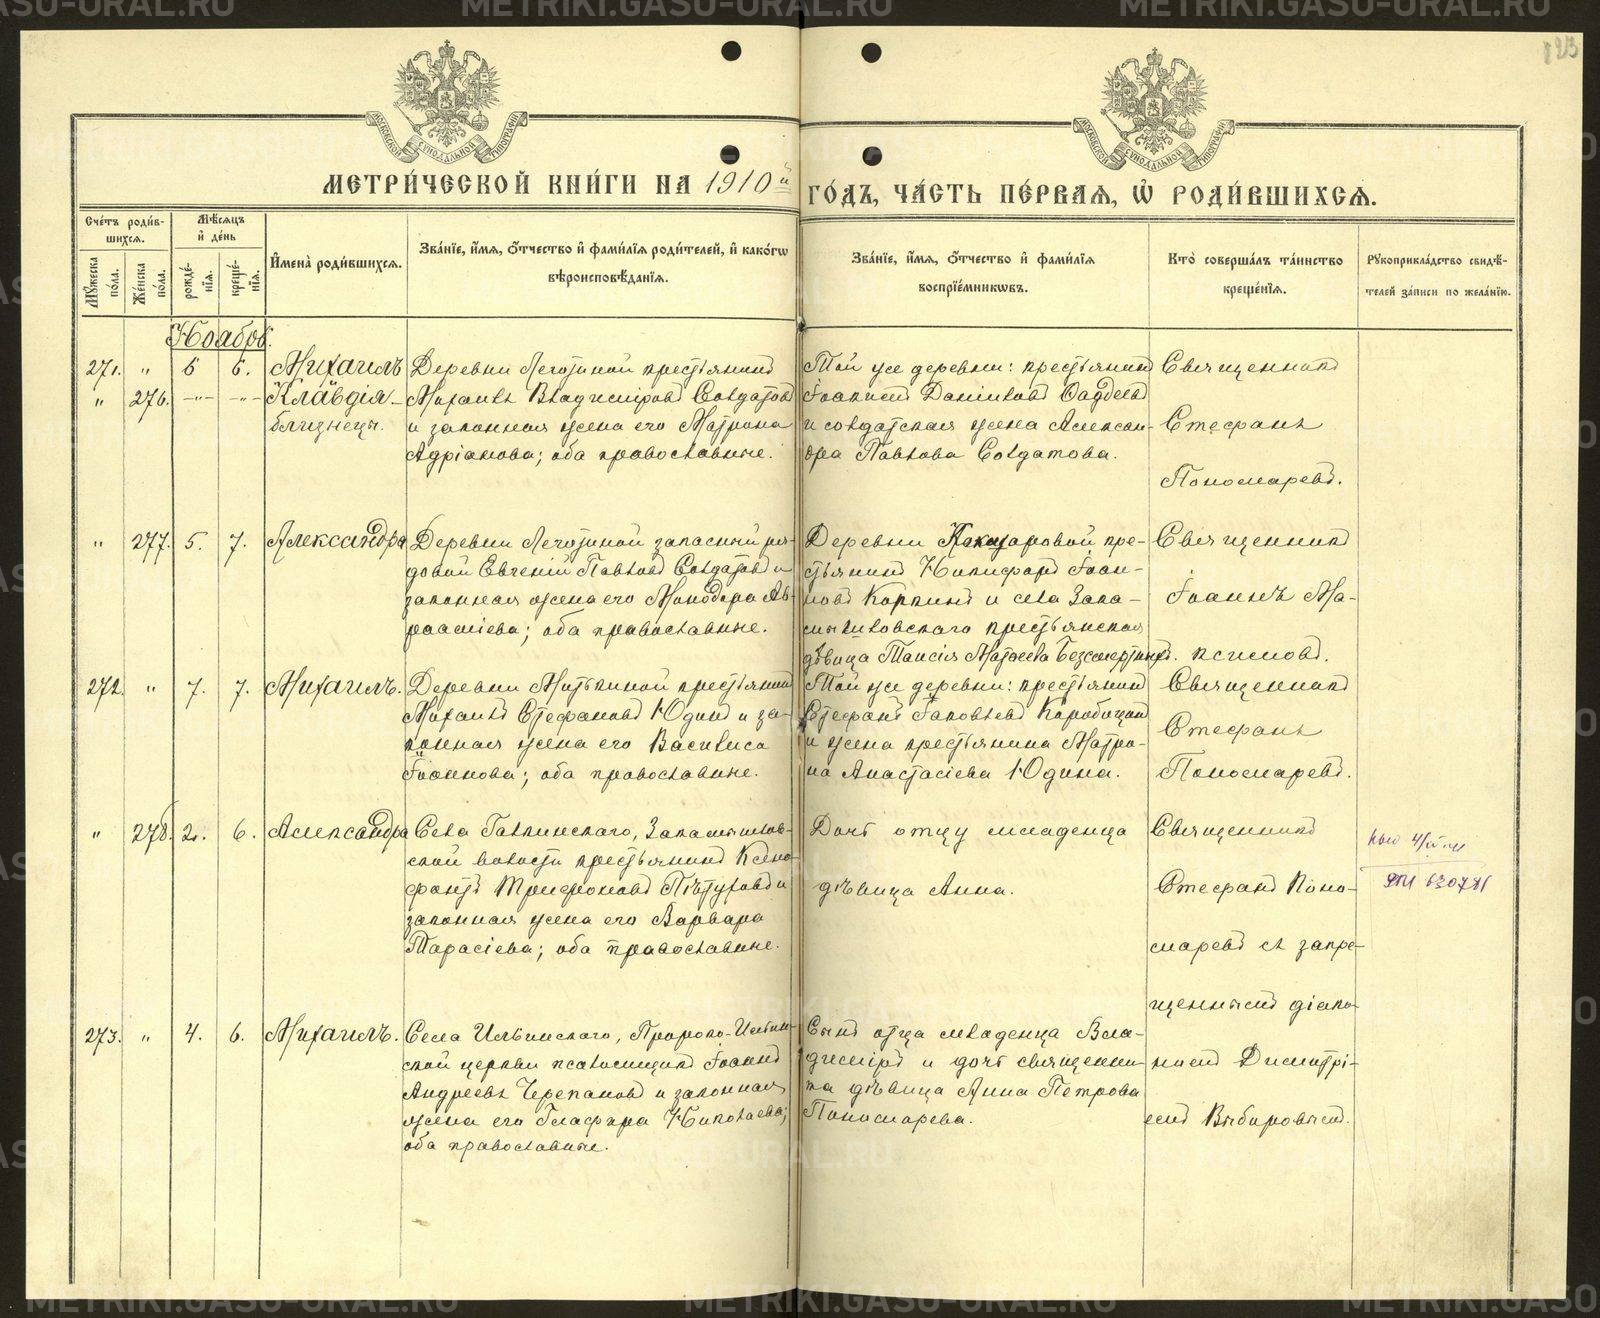 123
МОСКОВСКОЙ СУНОДАЛЬНОЙ ТИПОГРАФІИ
МОСКОВСКОЙ СУНОДАЛЬНОЙ ТИПОГРАФІИ
МЕТРИ́ЧЕСКОЙ КНИ́ГИ НА 1910й
ГО́ДЪ, ЧА́СТЬ ПЕ́РВАЯ, Ѽ РОДИ́ВШИХСѦ.
Сче́тъ роди́в-
шихсѧ.
Мѣ́сѧцъ
и҆ де́нь
Мꙋ́жеска по́ла.
Же́нска по́ла.
рожде́-нїѧ.
креще́-нїѧ.
И҆мена̀ роди́вшихсѧ.
Зва́нїе, и҆́мѧ, ѻ҆́тчество и҆ фами́лїѧ роди́телей, и҆ како́гѡ
вѣроисповѣ́данїѧ.
Зва́нїе, и҆́мѧ, ѻ҆́тчество и҆ фами́лїѧ
воспрїе́мниковъ.
Кто̀ соверша́лъ та́инство
креще́нїѧ.
Рꙋкоприкла́дство свидѣ́-
телей за́писи по жела́нїю.
Ноябрь.
271. " 6 6. Михаилъ
" 276. —"— —"— Клавдія
близнецы.
Деревни крестьянинъ
Михаилъ Владиміровъ Солдатовъ
и законная жена его Матрона
Адріанова; оба православные.
Той же деревни: крестьянинъ
Іоаннъ Даніиловъ
и солдатская жена Алексан-
дра Павлова Солдатова.
Священникъ
Стефанъ
Пономаревъ.
" 277. 5. 7. Александра
Деревни запасный ря-
довой Евгеній Павловъ Солдатовъ и
законная жена его Минодора Ав-
раамiева; оба православные.
Деревни кре-
стьянинъ Никифоръ Іоан-
новъ Корпинъ и села Зала-
крестьянская
дѣвица Таисія Матѳеева Безсмертныхъ.
Священникъ
Іоаннъ Ма-
ксимовъ.
272. " 7. 7. Михаилъ.
Деревни Митькиной крестьянинъ
Михаилъ Стефановъ Юдинъ и за-
конная жена его Василиса
Іоаннова; оба православные.
Той же деревни: крестьянинъ
Стефанъ Іаковлевъ
и жена крестьянина Матро-
на Анастасіева Юдина.
Священникъ
Стефанъ
Пономаревъ.
" 278. 2. 6. Александра
Села Гаклинскаго,
ской волости крестьянинъ Ксено-
фонтъ Трифоновъ Пѣтуховъ и
законная жена его Варвара
Тарасіева; оба православные.
Дочь отцу младенца
дѣвица Анна.
Священникъ
Стефанъ Поно-
маревъ съ запре-
щеннымъ діако-
номъ Димитрі-
емъ Выборовымъ.
273. " 4. 6. Михаилъ.
Села Ильинскаго, Пророко-Ильин-
ской церкви псаломщикъ Іоаннъ
Андреевъ Черепановъ и законная
жена его Глафира Николаева;
оба православные.
Сынъ отца младенца Вла-
диміръ и дочь священни-
ка дѣвица Анна Петрова
Пономарева.
METRIKI.GASU-URAL.RU